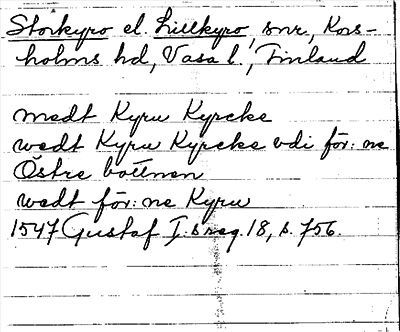 Storkyro el. Lillkyro, snr, Kors-
holms hd, Vasa l., Finland
medt Kyru Kyrcke
wedt Kyru Kyrcke vdi för:ne
Östre bottnen
wedt för:ne Kyru
1547 Gustaf I:s reg. 18, s. 756.